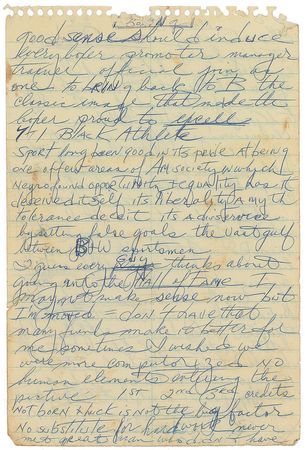 Boxing
good sense should induce
every boxer promoter manager
trainer official going as
one to bring back to B the
classic image that made the
boxer proud to excell
7-1 Black Athlete
Sport long been good in its pewe at being
one of few areas of AM society in which
Negro found opportunity & equality has it
deceived itself its liberality a myth
tolerance deceit its a disservice
by setting false goals the vast gulf
between B & W sportsmen
I guess every Guy thinks about
going into the Hall of Fame I
may not make sense now but
I'm moved = don't have that
many funds make it better for
me sometimes I wished we
were more computorized no
human elements entering the
picture 1st 2nd 3rd credits
Not born luck is not the big factor
No substitute for hard work never
met great man who didn't have